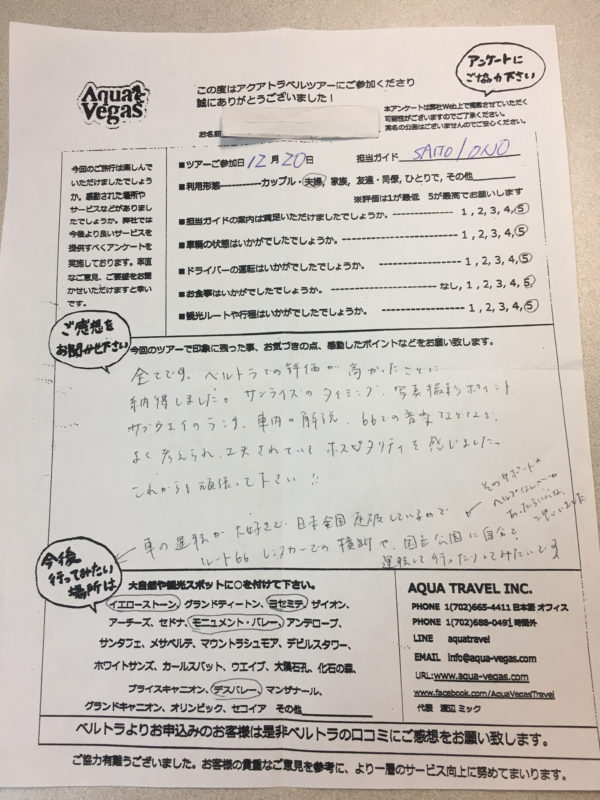 Aqua Vegas
この度はアクアトラベルツアーにご参加くださり
誠にありがとうございました！
アンケートに
ご協力下さい
本アンケートは弊社Web上で掲載させていただく
可能性がございますのでご了承ください。
実名の公表はございませんのでご安心ください。
お名前
今回のご旅行は楽しんで
いただけましたでしょう
か。感動された場所や
サービスなどがありまし
たでしょうか。弊社では
今後より良いサービスを
提供すべくアンケートを
実施しております。率直
なご意見、ご要望をお聞
かせいただけますと幸い
です。
■ツアーご参加日 12月20日 担当ガイド SAITO/ONO
■利用形態------------カップル・夫婦, 家族, 友達・同僚, ひとりで, その他
※評価は1が最低 5が最高でお願いします
■担当ガイドの案内は満足いただけましたでしょうか。---------------- 1 , 2, 3, 4, 5
■車輌の状態はいかがでしたでしょうか。---------------- 1 , 2, 3, 4, 5
■ドライバーの運転はいかがでしたでしょうか。---------------- 1 , 2, 3, 4, 5
■お食事はいかがでしたでしょうか。---------------- なし, 1, 2, 3, 4, 5
■観光ルートや行程はいかがでしたでしょうか。---------------- 1 , 2, 3, 4, 5
ご感想を
お聞かせ下さい
今回のツアーで印象に残った事、お気づきの点、感動したポイントなどをお願い致します。
全てです。ベルトラでの評価が高かったことに
納得しました。サンライズのタイミング、写真撮影ポイント、
サブウェイのランチ、車内の解説、66での音楽 などなど、
よく考えられ、工夫されていて ホスピタリティを感じました。
これからも頑張って下さい!!
車の運転が大好きで 日本全国 走破しているので
ルート66 レンタカーでの横断や、国立公園に自分で
運転して行ったりしてみたいです
そのサポート
ヘルプなんかも
あったらいいな、
と
今後
行ってみたい
場所は
大自然や観光スポットに○を付けて下さい。
イエローストーン、グランドティートン、ヨセミテ、ザイオン、
アーチーズ、セドナ、モニュメント・バレー、アンテロープ、
サンタフェ、メサベルデ、マウントラシュモア、デビルスタワー、
ホワイトサンズ、カールスバット、ウエイブ、大隕石孔、化石の森、
ブライスキャニオン、デスバレー、マンザナール、
グランドキャニオン、オリンピック、セコイア その他
AQUA TRAVEL INC.
PHONE 1(702)665-4411 日本語 オフィス
PHONE 1(702)688-0491 時間外
LINE aquatravel
EMAIL info@aqua-vegas.com
URL:www.aqua-vegas.com
www.facebook.com/AquaVegasTravel
代表 渡辺 ミック
ベルトラよりお申込みのお客様は是非ベルトラの口コミにご感想をお願い致します。
ご協力有難うございました。お客様の貴重なご意見を参考に、より一層のサービス向上に努めてまいります。